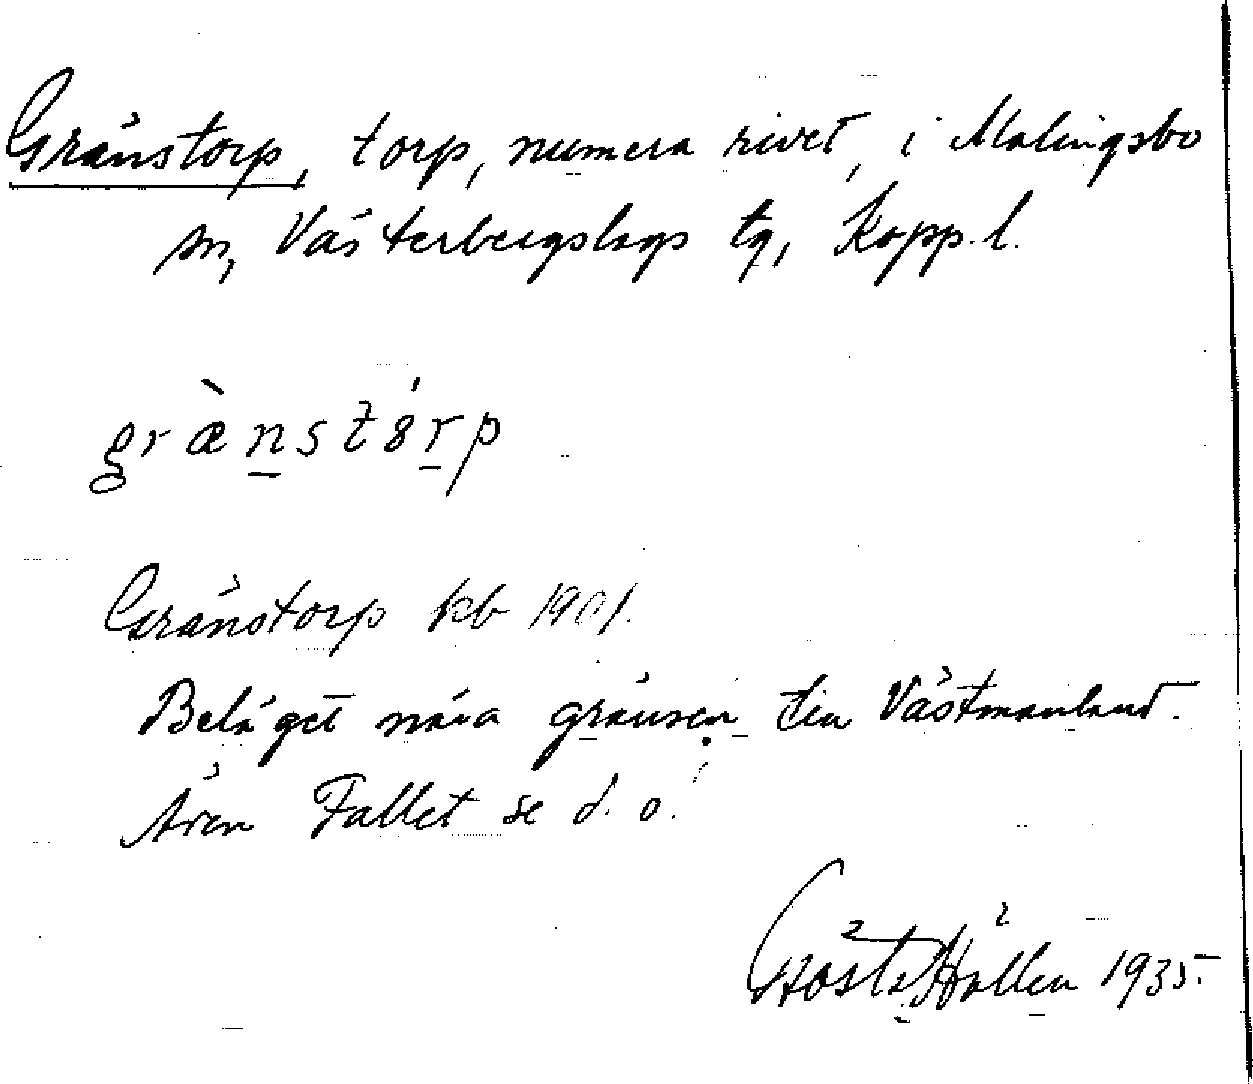 Gränstorp, torp, numera rivet, i Malingsbo
sn, Västerbergslags tg, Kopp. l.
grὲnstórp
Gränstorp kb 1901.
Beläget nära gränsen till Västmanland.
Även Fallet se d. o.!
Gösta Hållen 1935.